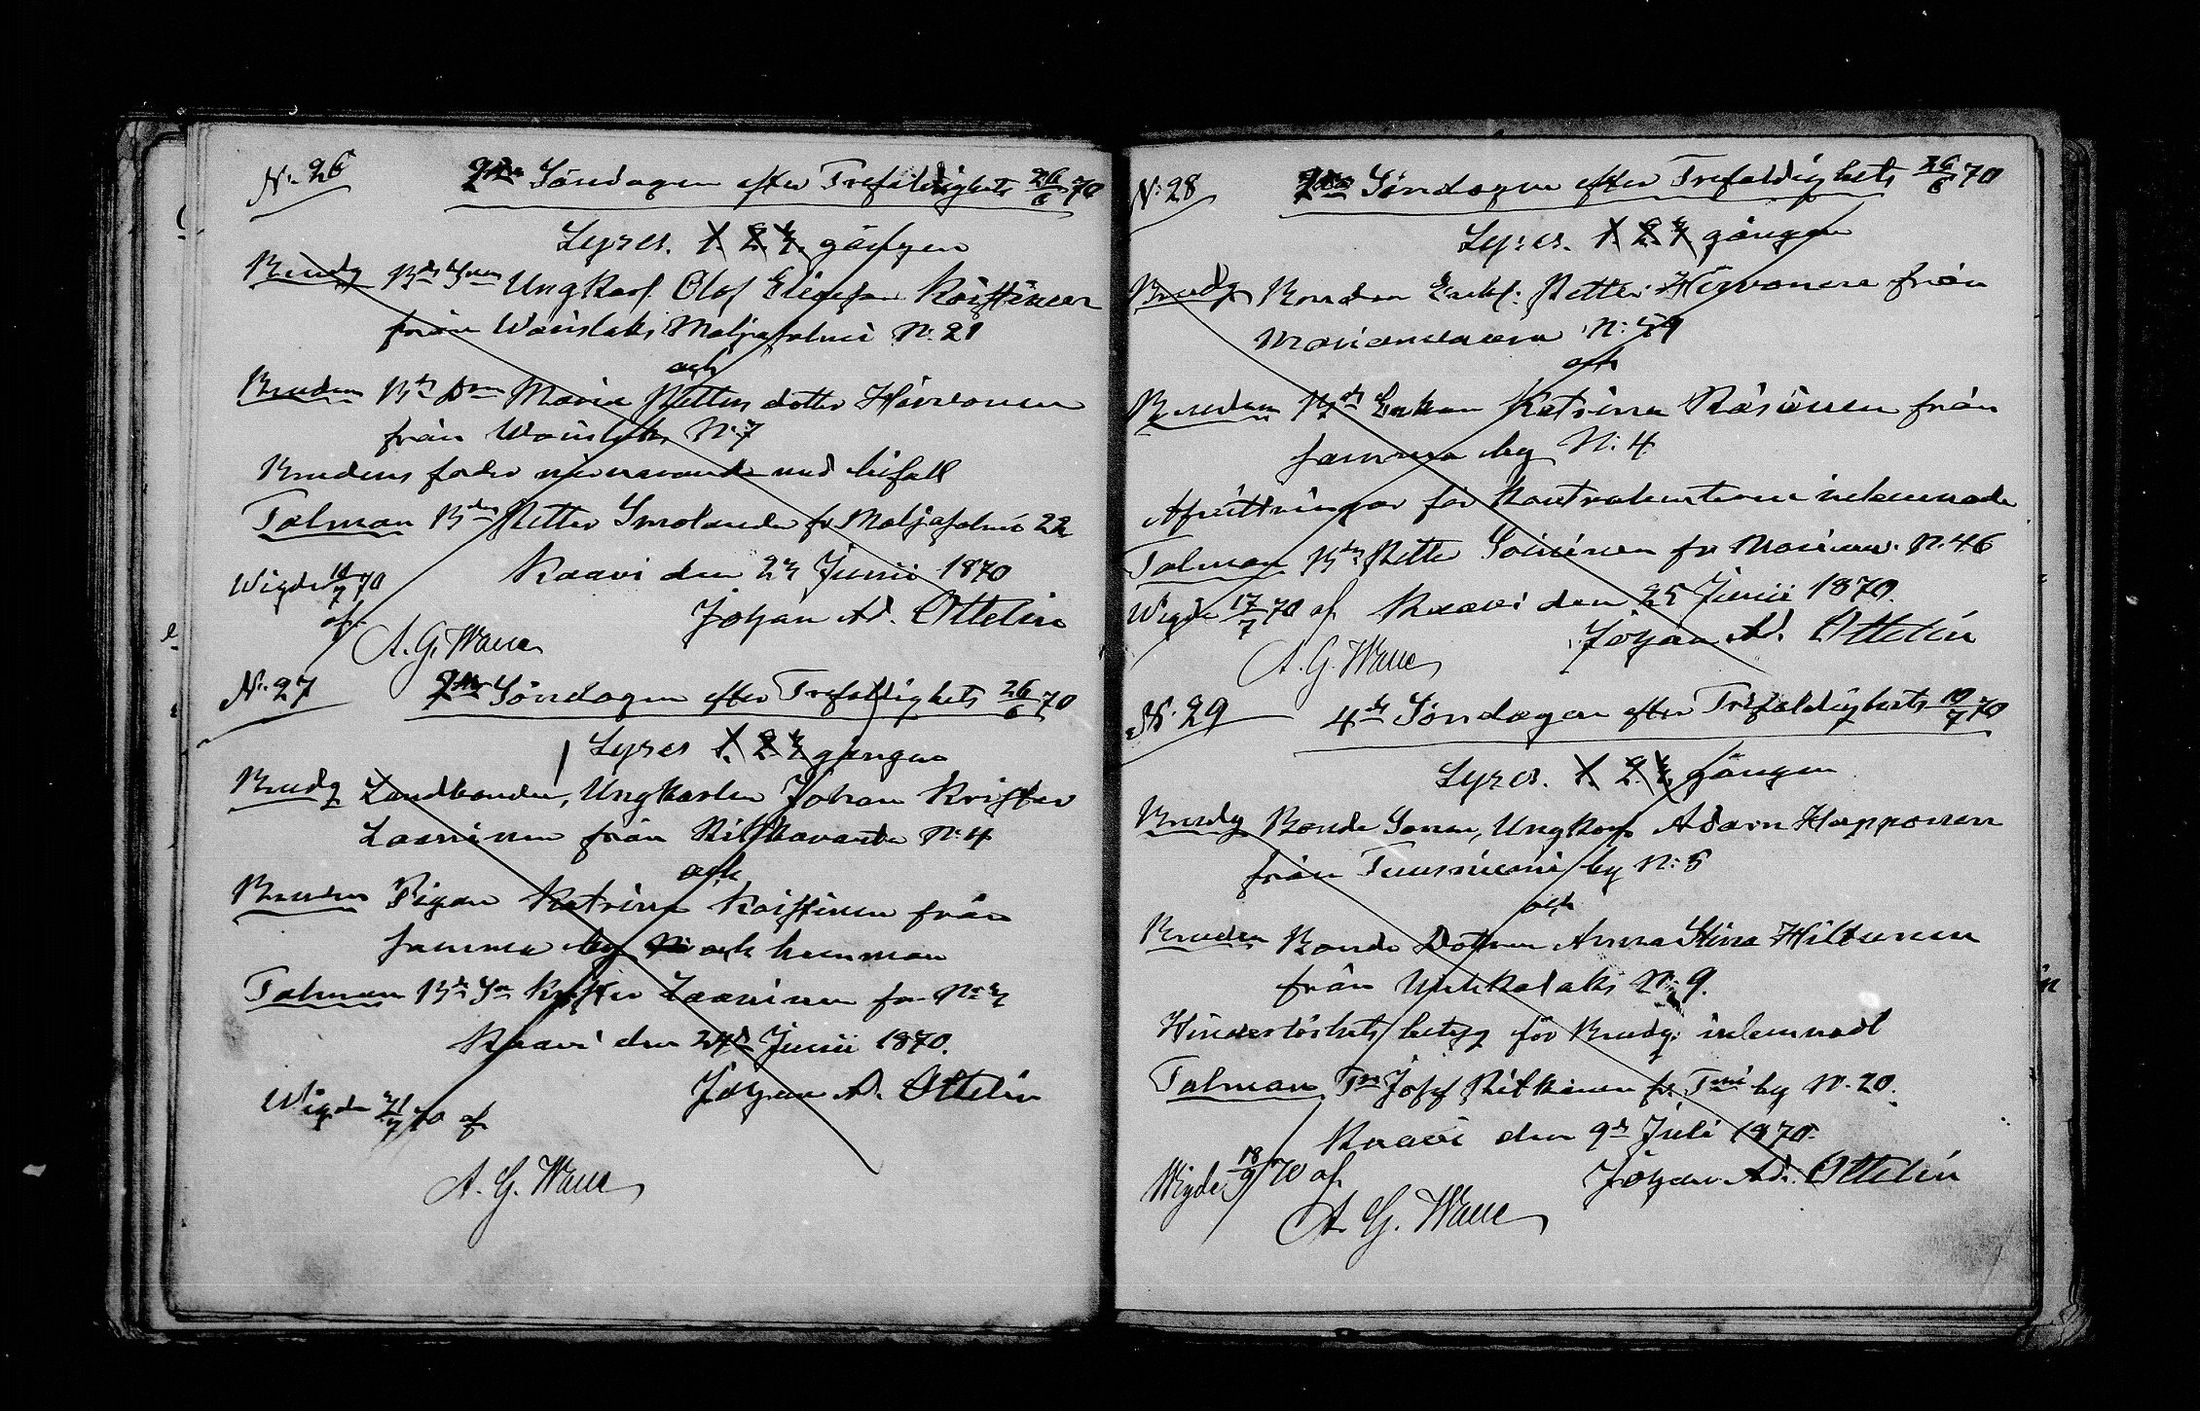 N: 26 2dra Söndagen efter Trefaldighets 26/6 70
Lyses. 1. 2. 3. gången
Brudg Bd Son Ungkarl Olof Eliasson Koistinen
från Wäislaks Maljasalmi N: 21
och
Bruden Bd Dn Maria Petters dotter Hirvonen
från Wäislaks N: 7
Brudens fader närvarande med bifall
Talman Bden Petter Smolander fr Maljasalmi 22
Kaavi den 23 Junii 1870
Johan Ad. Ottelin
Wigde 10/7 70
af
A. G. Wane
N: 27 2dra Söndagen efter Trefaldighets 26/6 70
Lyses 1. 2. 3. gången
Brudg Landbonden, Ungkarlen Johan Krister
Laaninen från N: 4
och
Bruden Pigan Katrina Koistinen från
samma by och hemman
Talman Bd Sn Krister Laaninen fr N: 3
Kaavi den 24de Junii 1870.
Johan A. Ottelin
Wigde 31/7 70 af
A. G. Wane
N: 28 2dra Söndagen efter Trefaldighets 26/6 70
Lyses. 1. 2. 3. gången
Brudg Bonden Enkl: Petter Hirvonen från
N: 59
och
Bruden Bds Enkan Katrina Räsänen från
samma by N: 4
Afvittringar för Kontrahenterne inlemnade
Talman Bdn Petter Soininen fr N: 46
Wigde 17/7 70 af Kaavi den 25 Junii 1870.
Johan Ad. Ottelin
A. G. Wane
N: 29 4de Söndagen efter Trefaldighets 10/7 70
Lyses. 1. 2. 3. gången
Brudg Bonde Sonen, Ungkarl Adam Happonen
från Tuusniemi by N: 5
och
Bruden Bonde Dottren Anna Stina Hiltunen
från N: 9.
Hinderlöshets betyg för Brudg: inlemnadt
Talman Josef Pitkänen fr Tmi by N: 20.
Kaavi den 9de Juli 1870.
Johan Ad. Ottelin
Wigde 18/9 70 af
A. G. Wane